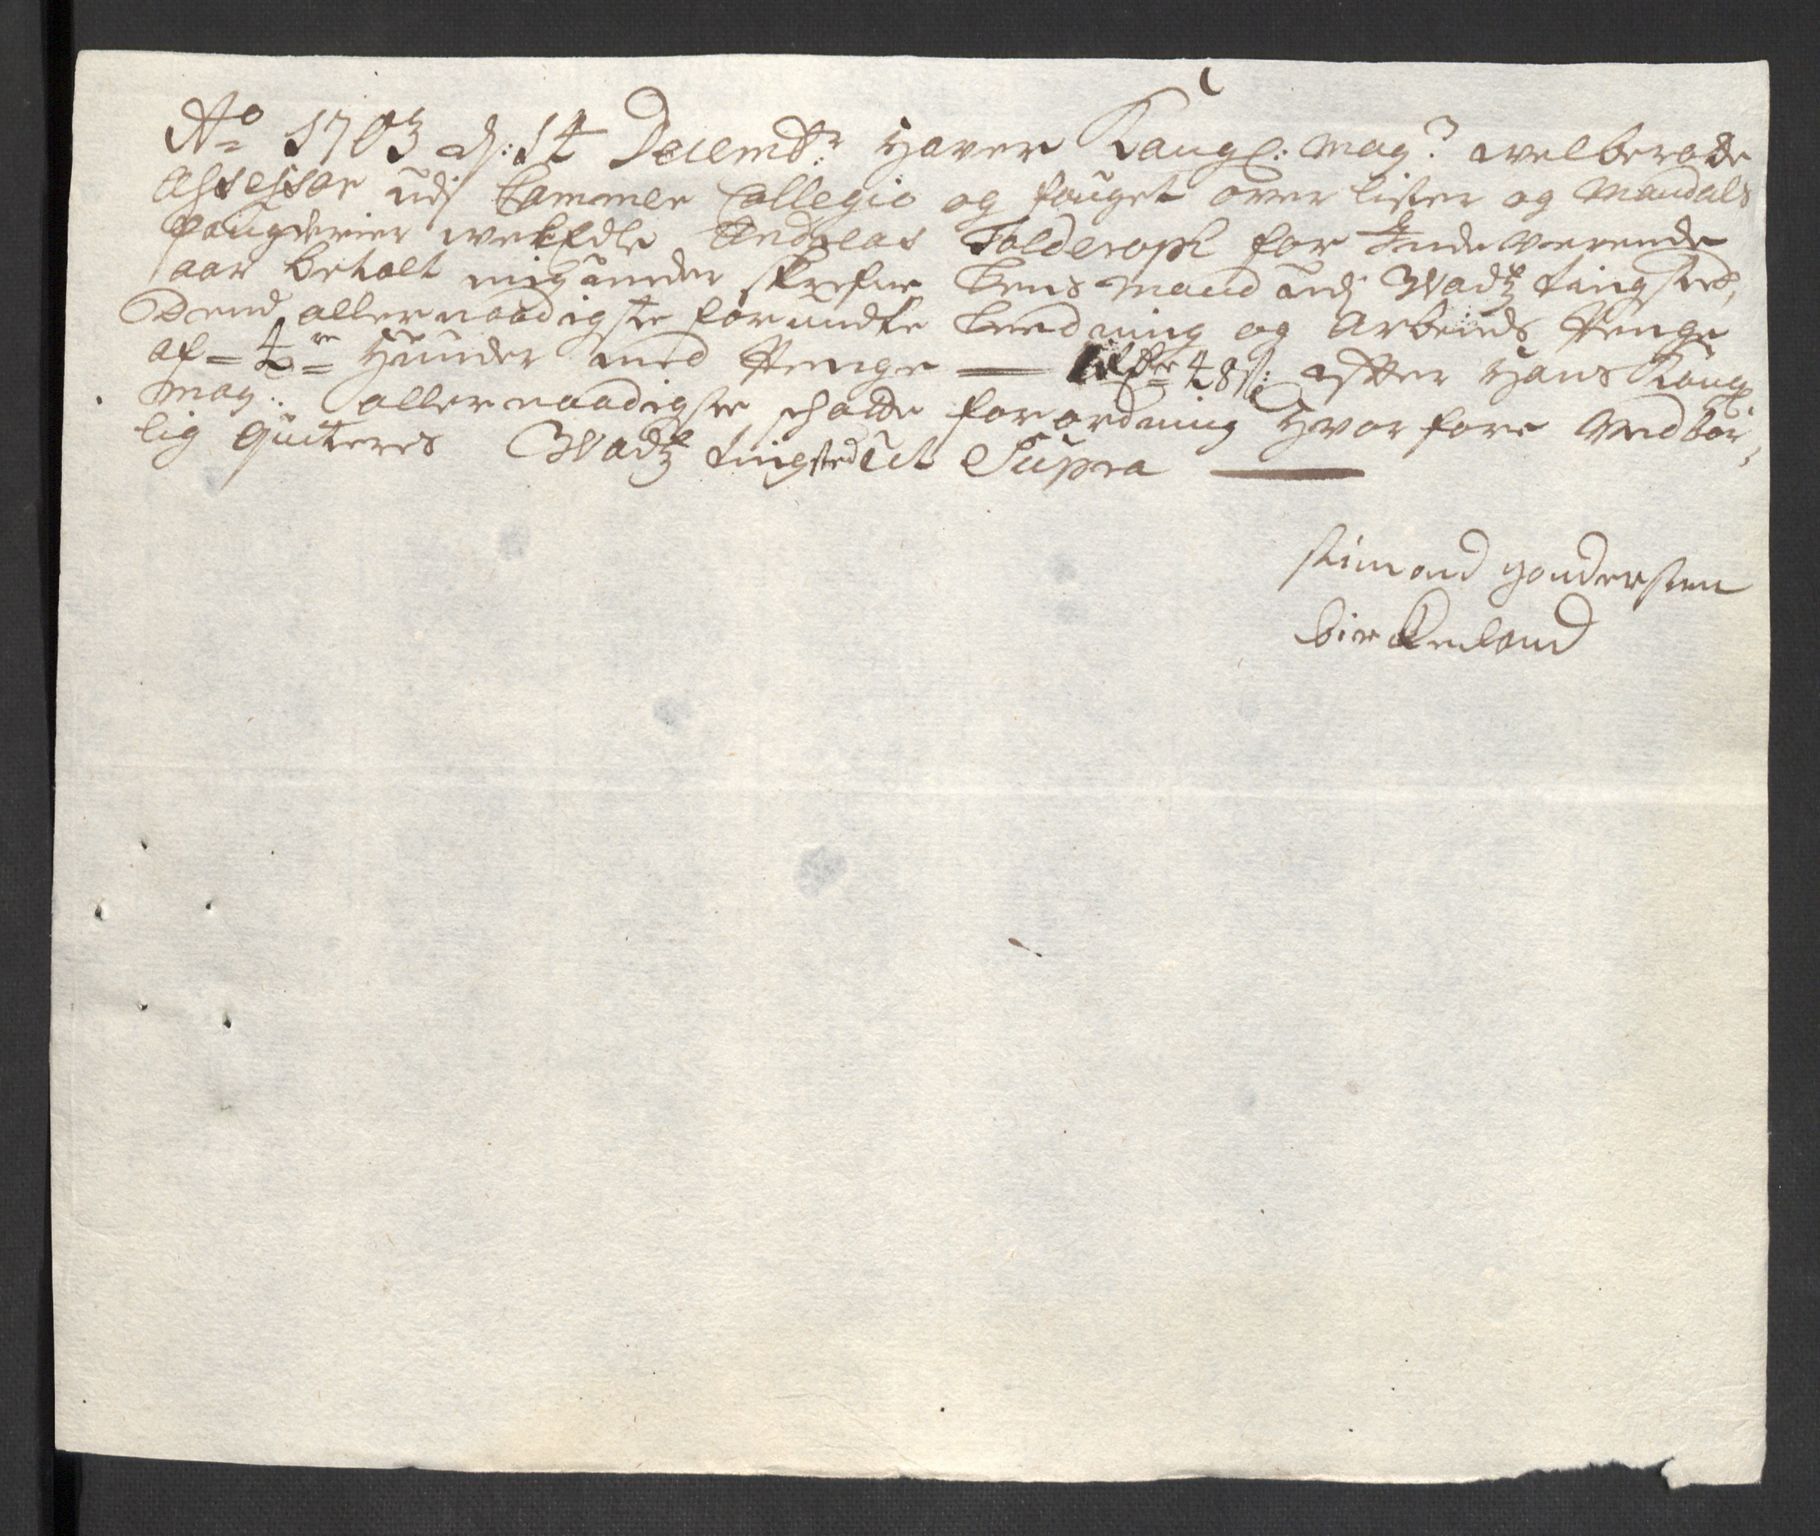 Ao 1703 d: 14 Decembr: Haver Kongl: May: welberode
Assessor udj Cammer Collegio og fouget over lister og Mandals
fougderier welEdle Andreas Tolderoph for Inde werende
aar betalt mig under skrefne Lens-mand udj Wadtz tingsted,
Dend allernaadigste forundte Leedning og Arbeids Penge
af = 4re = Hunder med Penge — 48 s: efter Hans Kongl
May: allernaadigste schatte forordning Hvorfore Vedbør,
lig Quiteres Wadtz tingsted Ut Supra —
simond gondersen
birckenland